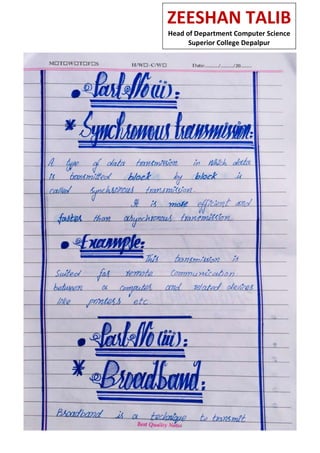 ZEESHAN TALIB
Head of Department Computer Science
Superior College Depalpur
MOTOWOTOFOS H/WO-C/WO Date:......./......./20.......
• Part No(ii):
* Synchronous transmission:
A type of data transmission in which data
is transmitted block by block is
called synchronous transmission.
It is more efficient and
faster than asynchronous transmission
• Example:
This transmission is
Suited for remote Communication
between a computer and related devices
like printers etc.
• Part No(iii):
* Broadband:
Broadband is a technique to transmit
Test Quality Notes